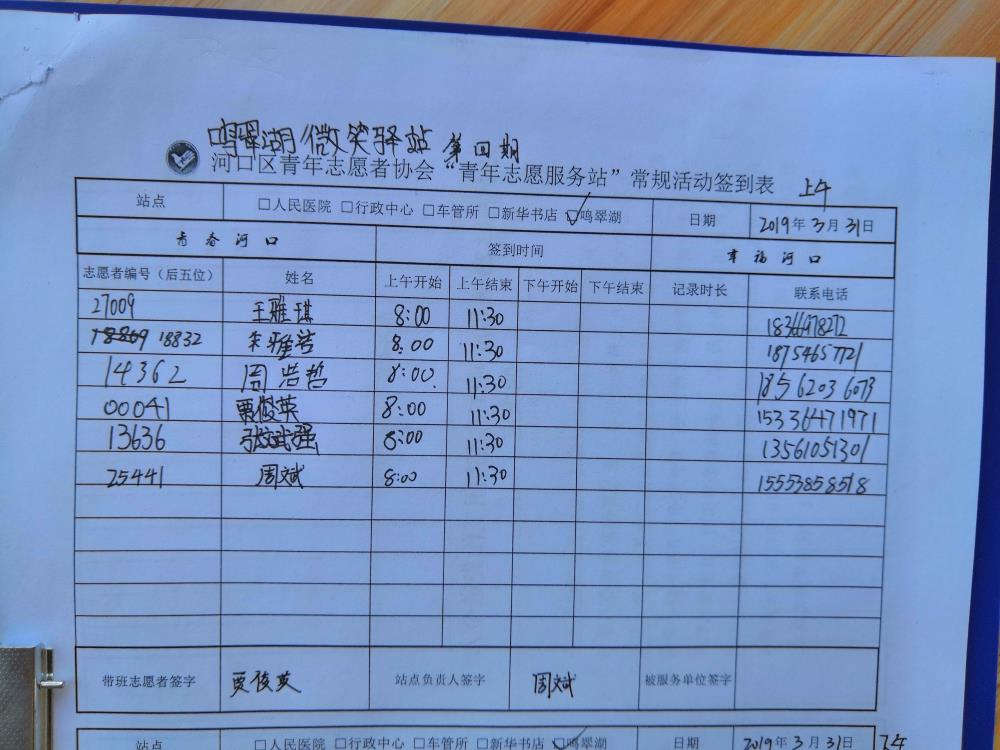 鸣翠湖微笑驿站 第四期
河口区青年志愿者协会“青年志愿服务站”常规活动签到表 上午
站点 □人民医院 □行政中心 □车管所 □新华书店 ☑鸣翠湖 日期 2019年3月31日
青春河口 签到时间 幸福河口
志愿者编号（后五位） 姓名 上午开始 上午结束 下午开始 下午结束 记录时长 联系电话
27009 王雅琪 8:00 11:30
18832 李雅洁 8:00 11:30 18754657721
14362 周浩哲 8:00 11:30 18562036073
00041 贾俊英 8:00 11:30 15336471971
13636 张武强 8:00 11:30 13561051301
25441 周斌 8:00 11:30 15553858518
带班志愿者签字 贾俊英 站点负责人签字 周斌 被服务单位签字
站点 □人民医院 □行政中心 □车管所 □新华书店 ☑鸣翠湖 日期 2019年3月31日 下午